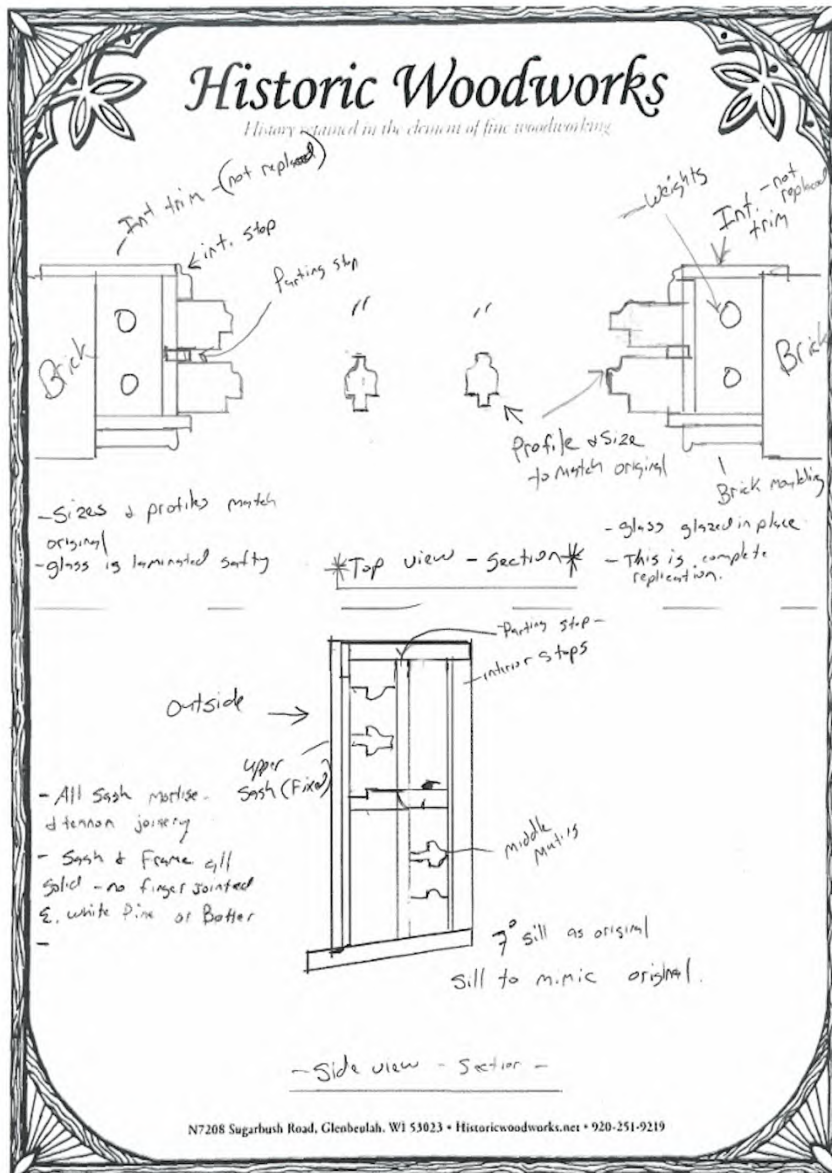 Historic Woodworks
History retained in the element of fine woodworking
Int trim - (not replaced)
int. stop
Parting stop
Weights
Int. - not replaced
trim
Brick
"
"
Brick
Profile & Size
to match original
Brick moulding
- Sizes & profiles match
original
- glass is laminated safty
*Top view - Section*
- glass glazed in place
- This is complete
replication.
- Parting stop -
- interior stops
Outside
upper
Sash (Fixed)
- All Sash mortise
& tennon joinery
- Sash & Frame all
Solid - no finger jointed
E. white Pine or Better
-
middle
7° sill as original
Sill to mimic original.
- Side view - Section -
N7208 Sugarbush Road, Glenbeulah, WI 53023 • Historicwoodworks.net • 920-251-9219